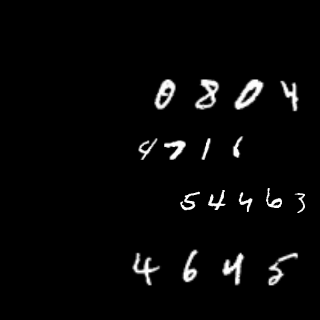 0804
4716
54463
4645